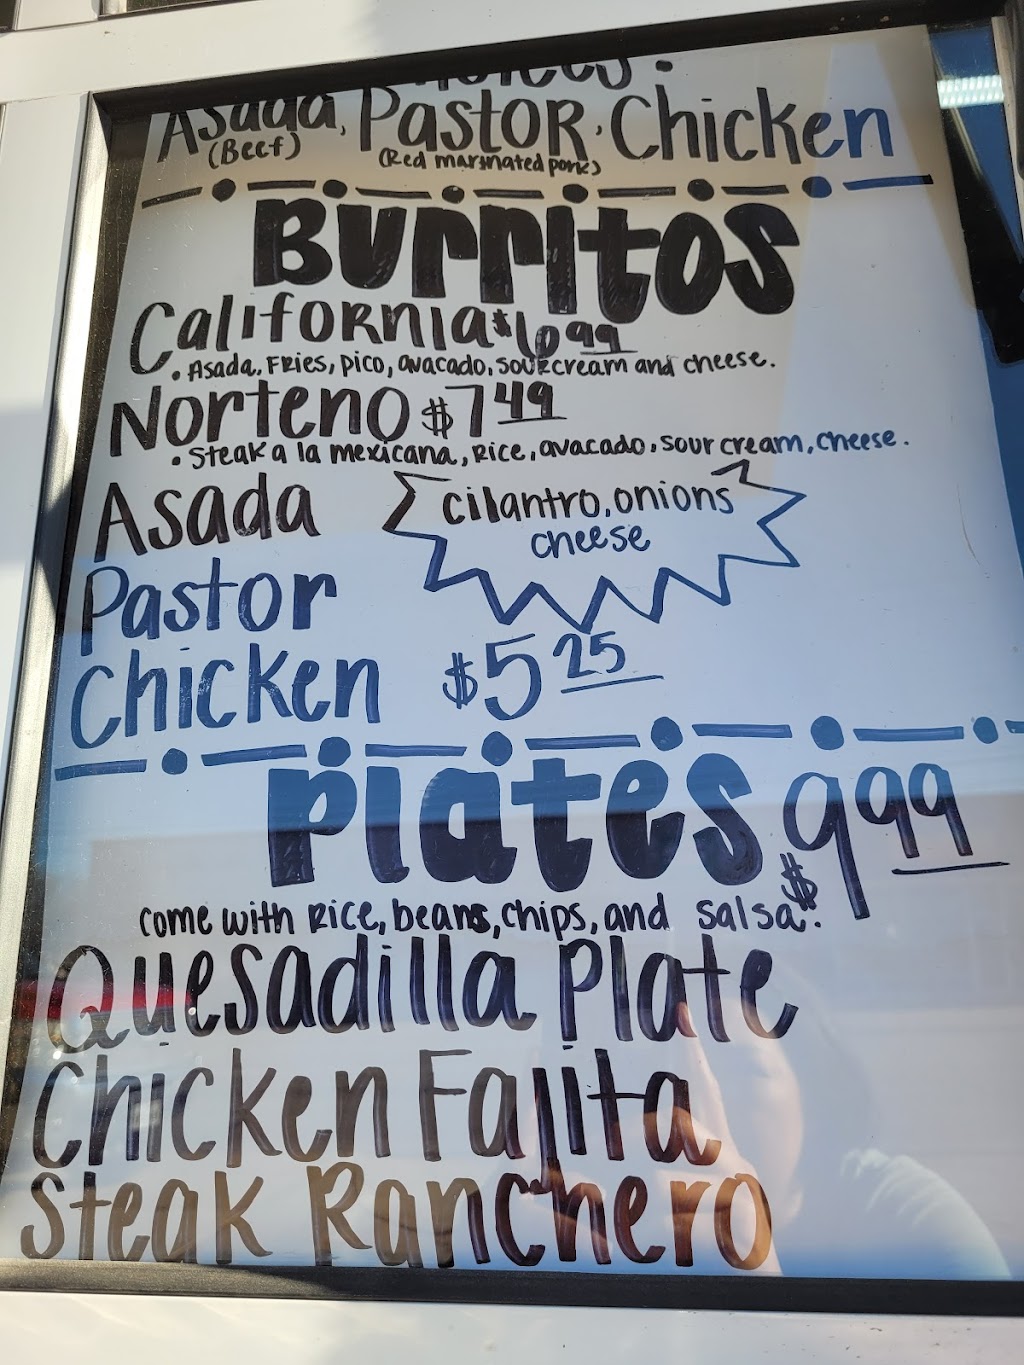 Asada, Pastor, Chicken
(Beef) (Red marinated pork)
Burritos
California $6.99
• Asada, Fries, pico, avacado, sour cream and cheese.
Norteno $7 49
• Steak a la mexicana, Rice, avacado, sour cream, cheese.
Asada
cilantro, onions
cheese
Pastor
Chicken $5 25
Plates $9 99
come with Rice, beans, chips, and salsa.
Quesadilla Plate
Chicken Fajita
Steak Ranchero